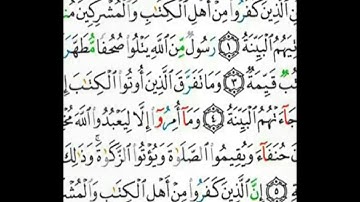 ـنِ الَّذِينَ كَفَرُوا۟ مِنْ أَهْلِ الْكِتَـٰبِ وَالْمُشْرِكِينَ
ـتِيَهُمُ الْبَيِّنَةُ ١ رَسُولٌ مِّنَ اللَّهِ يَتْلُوا۟ صُحُفًا مُّطَهَّرَ
ـتُبٌ قَيِّمَةٌ ٣ وَمَا تَفَرَّقَ الَّذِينَ أُوتُوا۟ الْكِتَـٰبَ إِلَّا
جَآءَتْهُمُ الْبَيِّنَةُ ٤ وَمَآ أُمِرُوٓا۟ إِلَّا لِيَعْبُدُوا۟ اللَّهَ مُخْـ
حُنَفَآءَ وَيُقِيمُوا۟ الصَّلَوٰةَ وَيُؤْتُوا۟ الزَّكَوٰةَ ۚ وَذَٰلِكَ
٥ إِنَّ الَّذِينَ كَفَرُوا۟ مِنْ أَهْلِ الْكِتَـٰبِ وَالْمُشْـ